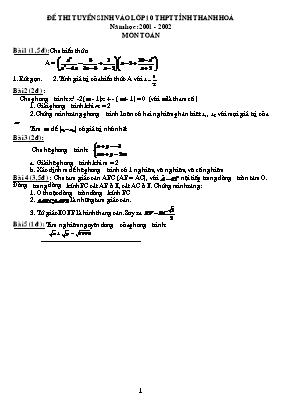 ĐỀ THI TUYỂN SINH VÀO LỚP 10 THPT TỈNH THANH HOÁ
Năm học: 2001 - 2002
MÔN TOÁN
Bài 1 (1,5đ): Cho biểu thức
A =
1. Rút gọn. 2. Tính giá trị của biểu thức A với x =
Bài 2 (2đ) :
Cho phương trình: x² -2(m - 1)x + - ( m+ 1) = 0 (với m là tham số)
1. Giải phương trình khi m = 2
2. Chứng minh rằng phương trình luôn có hai nghiệm phân biệt x₁, x₂ với mọi giá trị của
m
Tìm m để |x₁ - x₂| có giá trị nhỏ nhất
Bài 3 (2đ):
Cho hệ phương trình:
a. Giải hệ phương trình khi m = 2
b. Xác định m để hệ phương trình có 1 nghiệm, vô nghiệm, vô số nghiệm
Bài 4 (3,5đ) : Cho tam giác cân ABC (AB = AC), với nội tiếp trong đường tròn tâm O.
Đường tròn đường kính BC cắt AB ở E, cắt AC ở F. Chứng minh rằng:
1. O thuộc đường tròn đường kính BC
2. là những tam giác cân.
3. Tứ giác là hình thang cân. Suy ra
Bài 5 (1đ): Tìm nghiệm nguyên dương của phương trình:
1